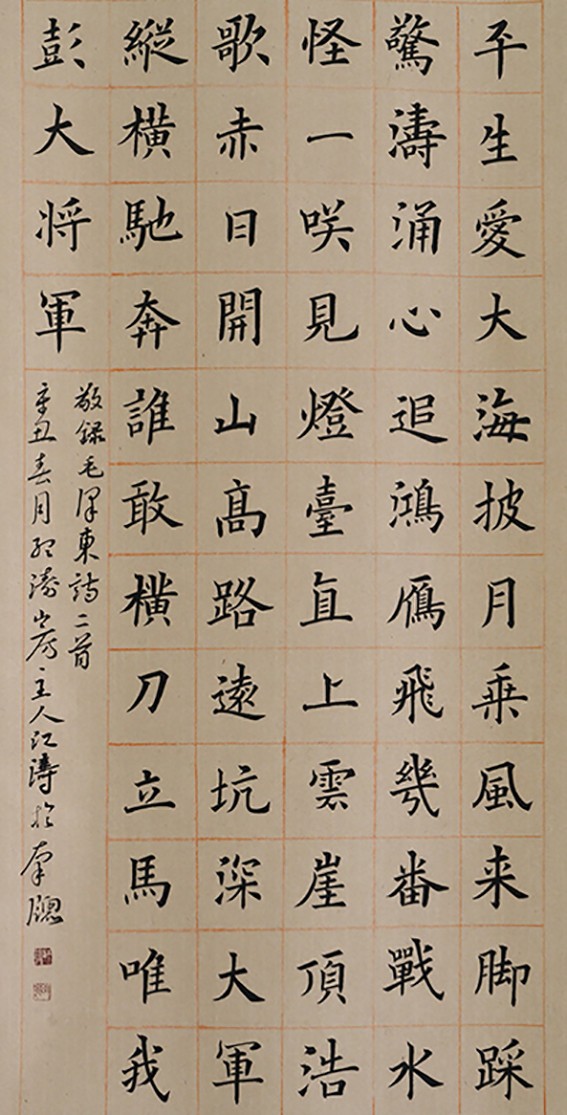 平生愛大海披月乗風来脚踩
驚濤涌心追鴻鴈飛幾番戰水
怪一咲見燈臺直上雲崖頂浩
歌赤日開山髙路遠坑深大軍
縱橫馳奔誰敢橫刀立馬唯我
彭大将軍
敬録毛澤東詩二首
辛丑春月濤山房主人江濤於